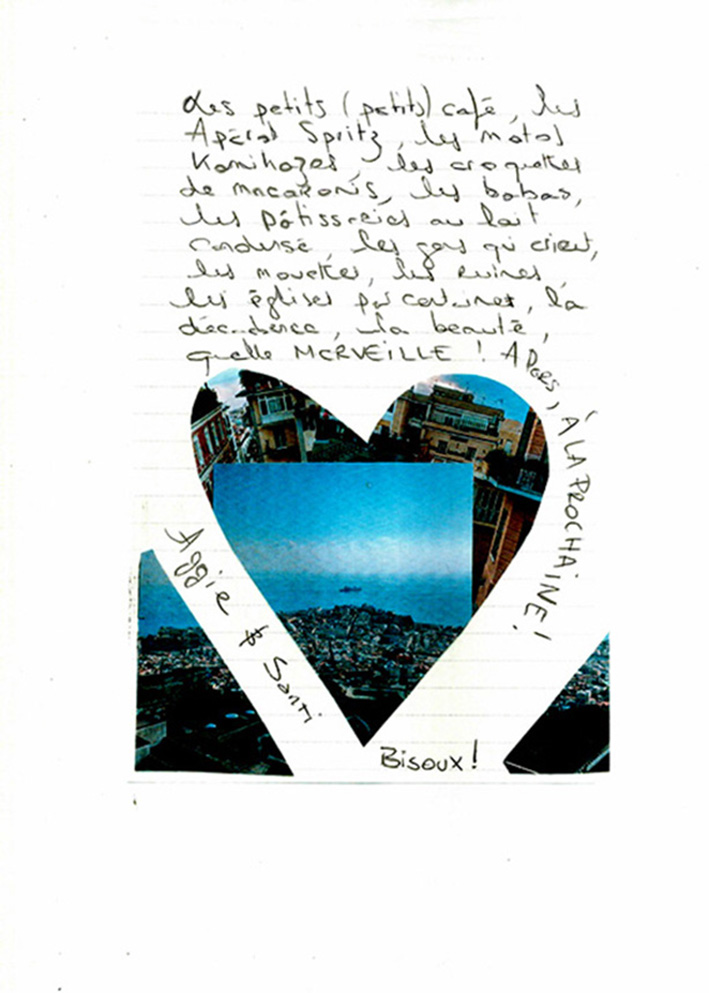 Les petits (petits) café, les
Apérol Spritz, les motos
Kamikazes, les croquettes
de macaronis, les babas,
les pâtisseries au lait
condensé, les gens qui crient,
les mouettes, les ruines,
les églises par centaines, la
décadence, la beauté,
quelle MERVEILLE ! A
, À LA PROCHAINE !
Aggie & Santi
Bisoux !